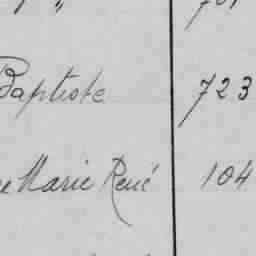 Baptiste 723
Marie René 104